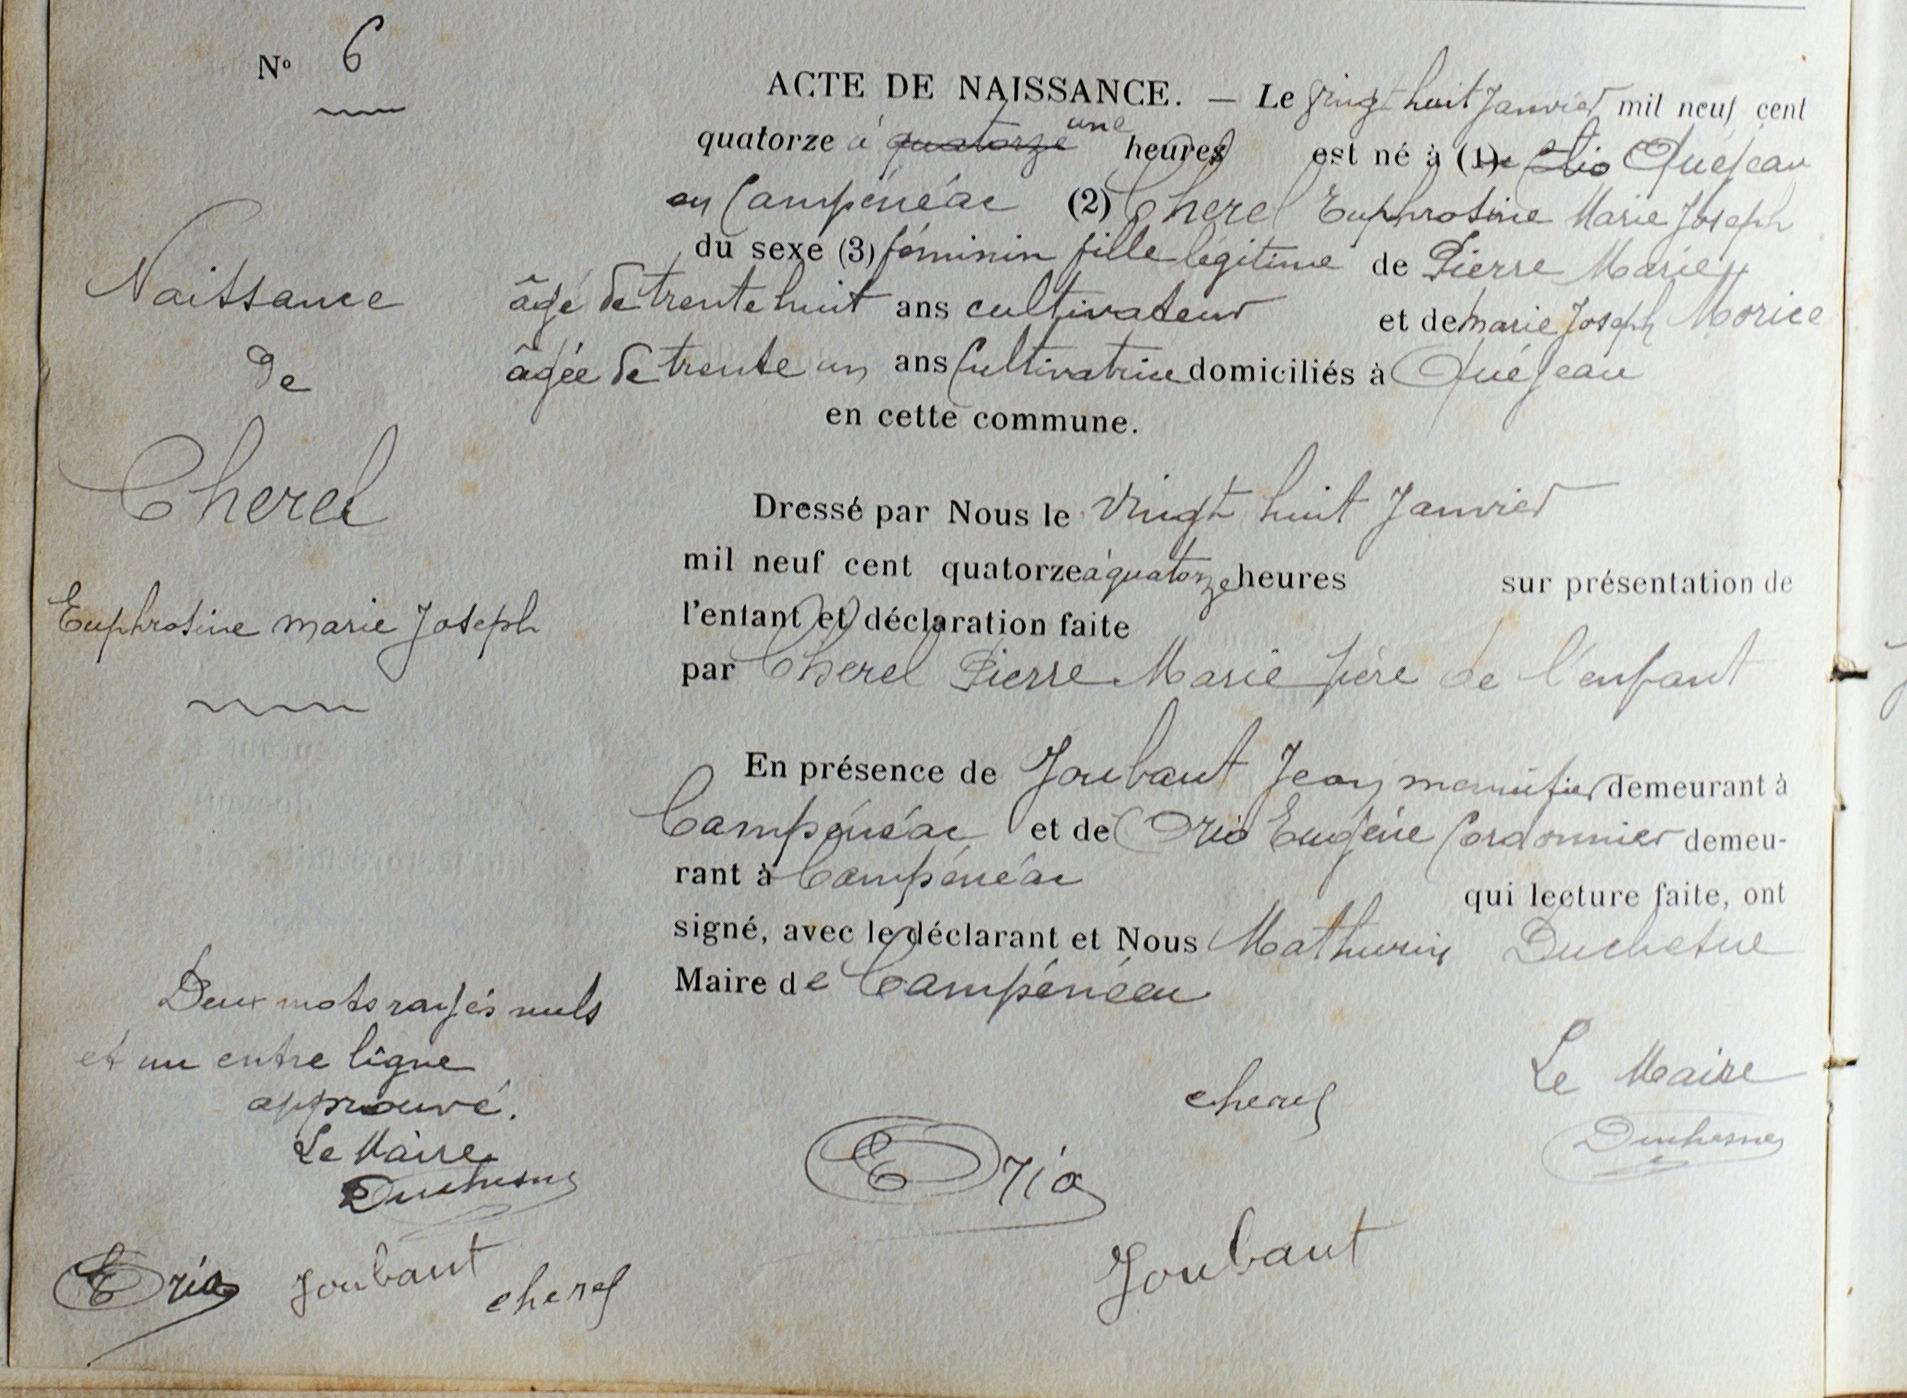 N° 6
ACTE DE NAISSANCE. — Le vingt huit Janvier mil neuf cent
quatorze à quatorze une heures est né à (1) Quéjeau
en Campénéac (2) Cherel Euphrosine Marie Joseph
du sexe (3) féminin fille légitime de Pierre Marie
âgé de trente huit ans cultivateur et de marie Joseph Morice
âgée de trente un ans Cultivatrice domiciliés à Quéjeau
en cette commune.
Naissance
de
Cherel
Euphrosine marie Joseph
Dressé par Nous le Vingt huit Janvier
mil neuf cent quatorze à quatorze heures sur présentation de
l'enfant et déclaration faite
par Cherel Pierre Marie père de l'enfant
En présence de Joubaut Jean menuisier demeurant à
Campénéac et de Orio Eugène Cordonnier demeu-
rant à Campénéac qui lecture faite, ont
signé, avec le déclarant et Nous Mathurin Duchesne
Maire de Campénéac
Deux mots rayés nuls
et un entre ligne
approuvé.
Le Maire
Duchesne
E Orio Joubaut cherel
cherel
Le Maire
Duchesne
E Orio
Joubaut